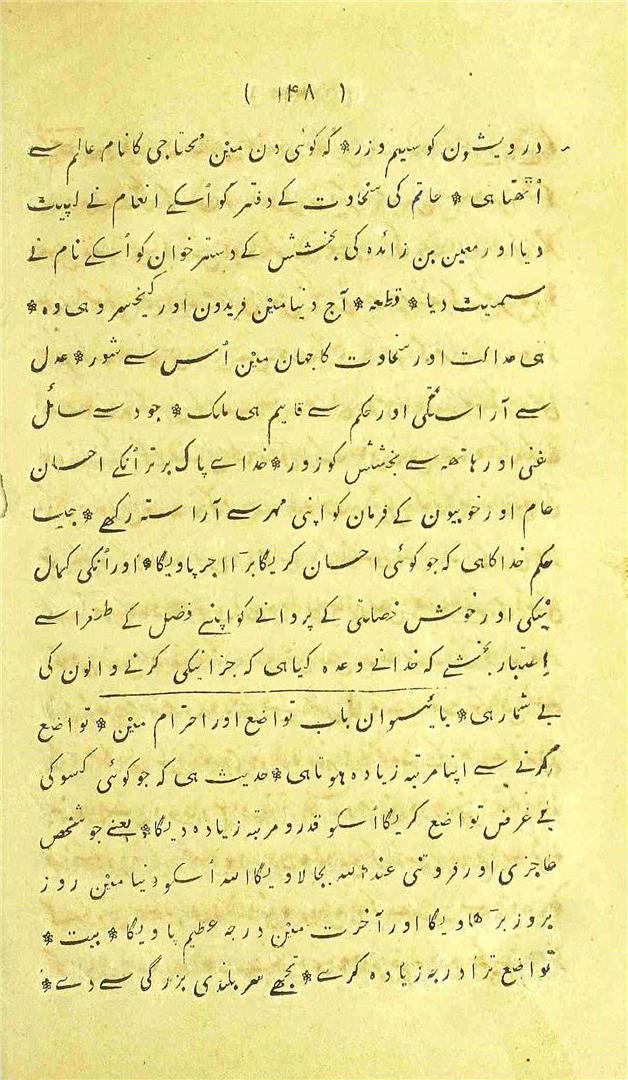 ( ۱۴۸ )
درویشون کو سیم و زر * کہ کوئی دن مین محتاجی کا نام عالم سے
اُٹھتا ہی * حاتم کی سخاوت کے دفتر کو اُسکے انعام نے لپیٹ
دیا اور معین بن زائدہ کی بخشش کے دسترخوان کو اُسکے نام نے
سمیٹ دیا * قطعہ * آج دنیا مین فریدون اور کیخسرو ہی وہ *
ہی عدالت اور سخاوت کا جہان مین اُس سے شور * عدل
سے آراستگی اور حکم سے قایم ہی ملک * جود سے سائل
غنی اور ہاتھہ سے بخشش کو زور * خداے پاک برتر اُنکے احسان
عام اور خوبیون کے فرمان کو اپنی مہر سے آراستہ رکھے * جیسا
حکم خدا کا ہی کہ جو کوئی احسان کریگا بڑا اجر پاویگا * اور اُنکی کمال
نیکی اور خوش خصلتی کے پروانے کو اپنے فضل کے طغرا سے
اعتبار بخشے کہ خدا نے وعدہ کیا ہی کہ جزا نیکی کرنے والون کی
بے شمار ہی * بائیسوان باب تواضع اور احترام مین * تواضع
کرنے سے اپنا مرتبہ زیادہ ہوتا ہی * حدیث ہی کہ جو کوئی کسو کی
بے غرض تواضع کریگا اُسکو قدر و مرتبہ زیادہ دیگا * یعنے جو شخص
عاجزی اور فروتنی عند اللہ بجا لاویگا اللہ اُسکو دنیا مین روز
بروز بڑھاویگا اور آخرت مین درجہ عظیم پاویگا * بیت *
تواضع ترا درجہ زیادہ کرے * تجھے سربلندی بزرگی سے دے *